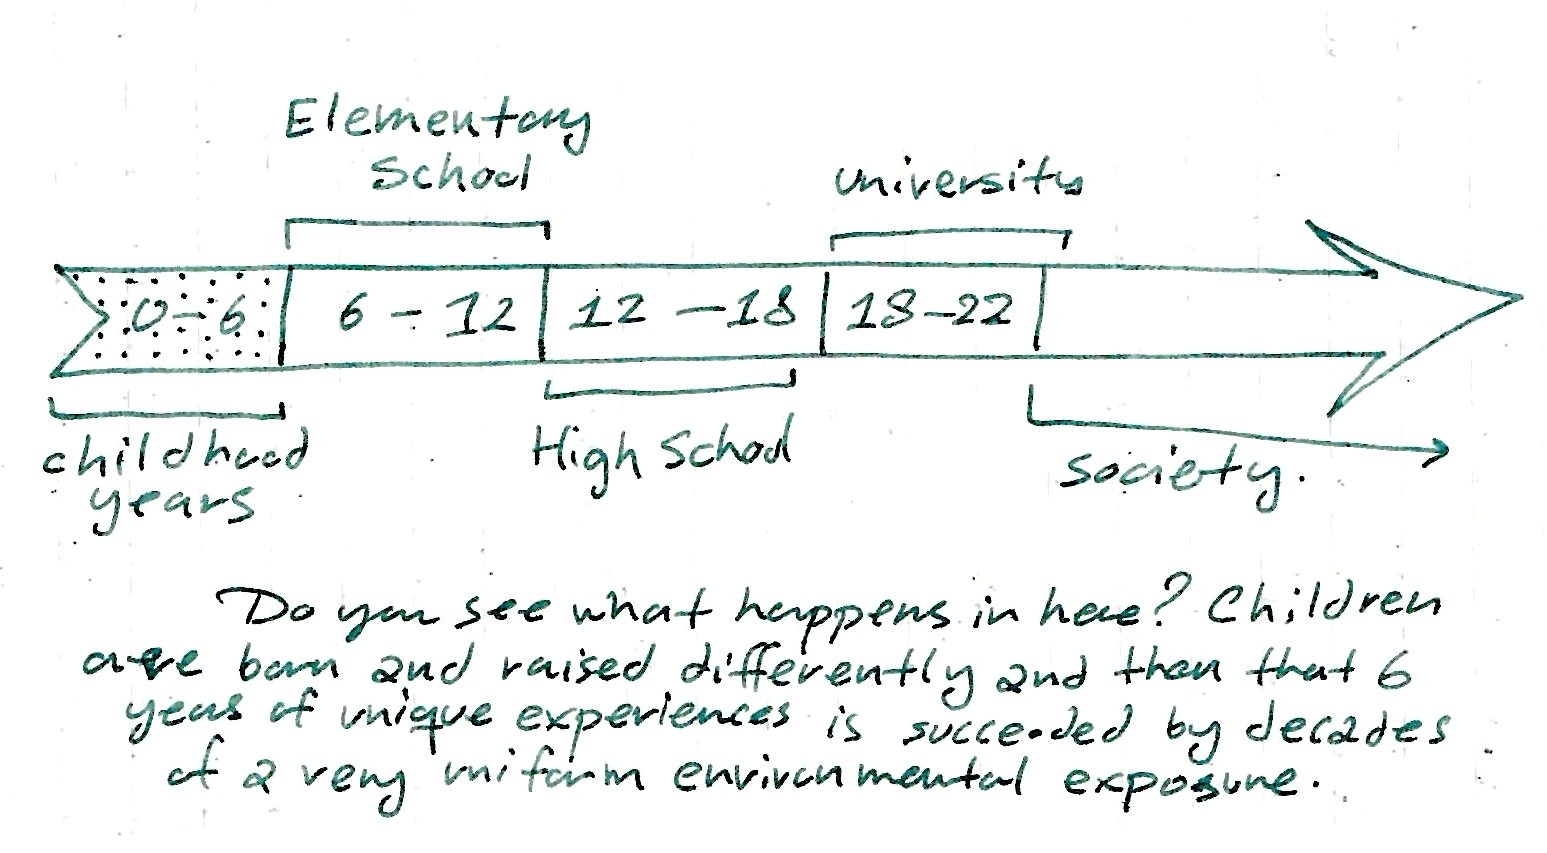 Elementary
School
university
0-6
6 - 12
12 -18
18-22
childhood
years
High School
society.
Do you see what happens in here? Children
are born and raised differently and then that 6
years of unique experiences is succeeded by decades
of a very uniform environmental exposure.